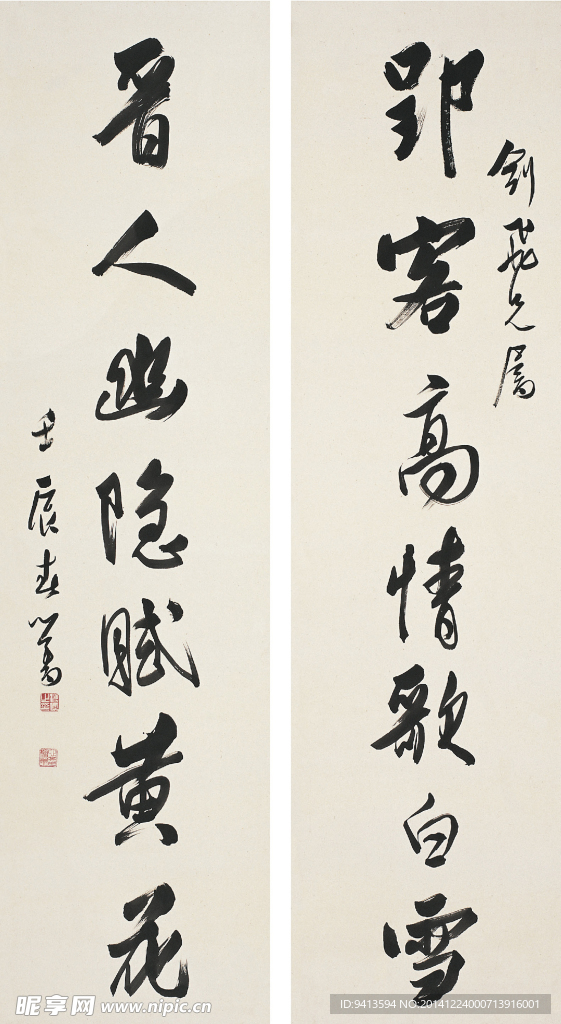 郢客高情歌白雪
劍飛兄屬
晋人幽隐賦黄花
壬辰春心畬
昵享网 www.nipic.cn
ID:9413594 NO:20141224000713916001